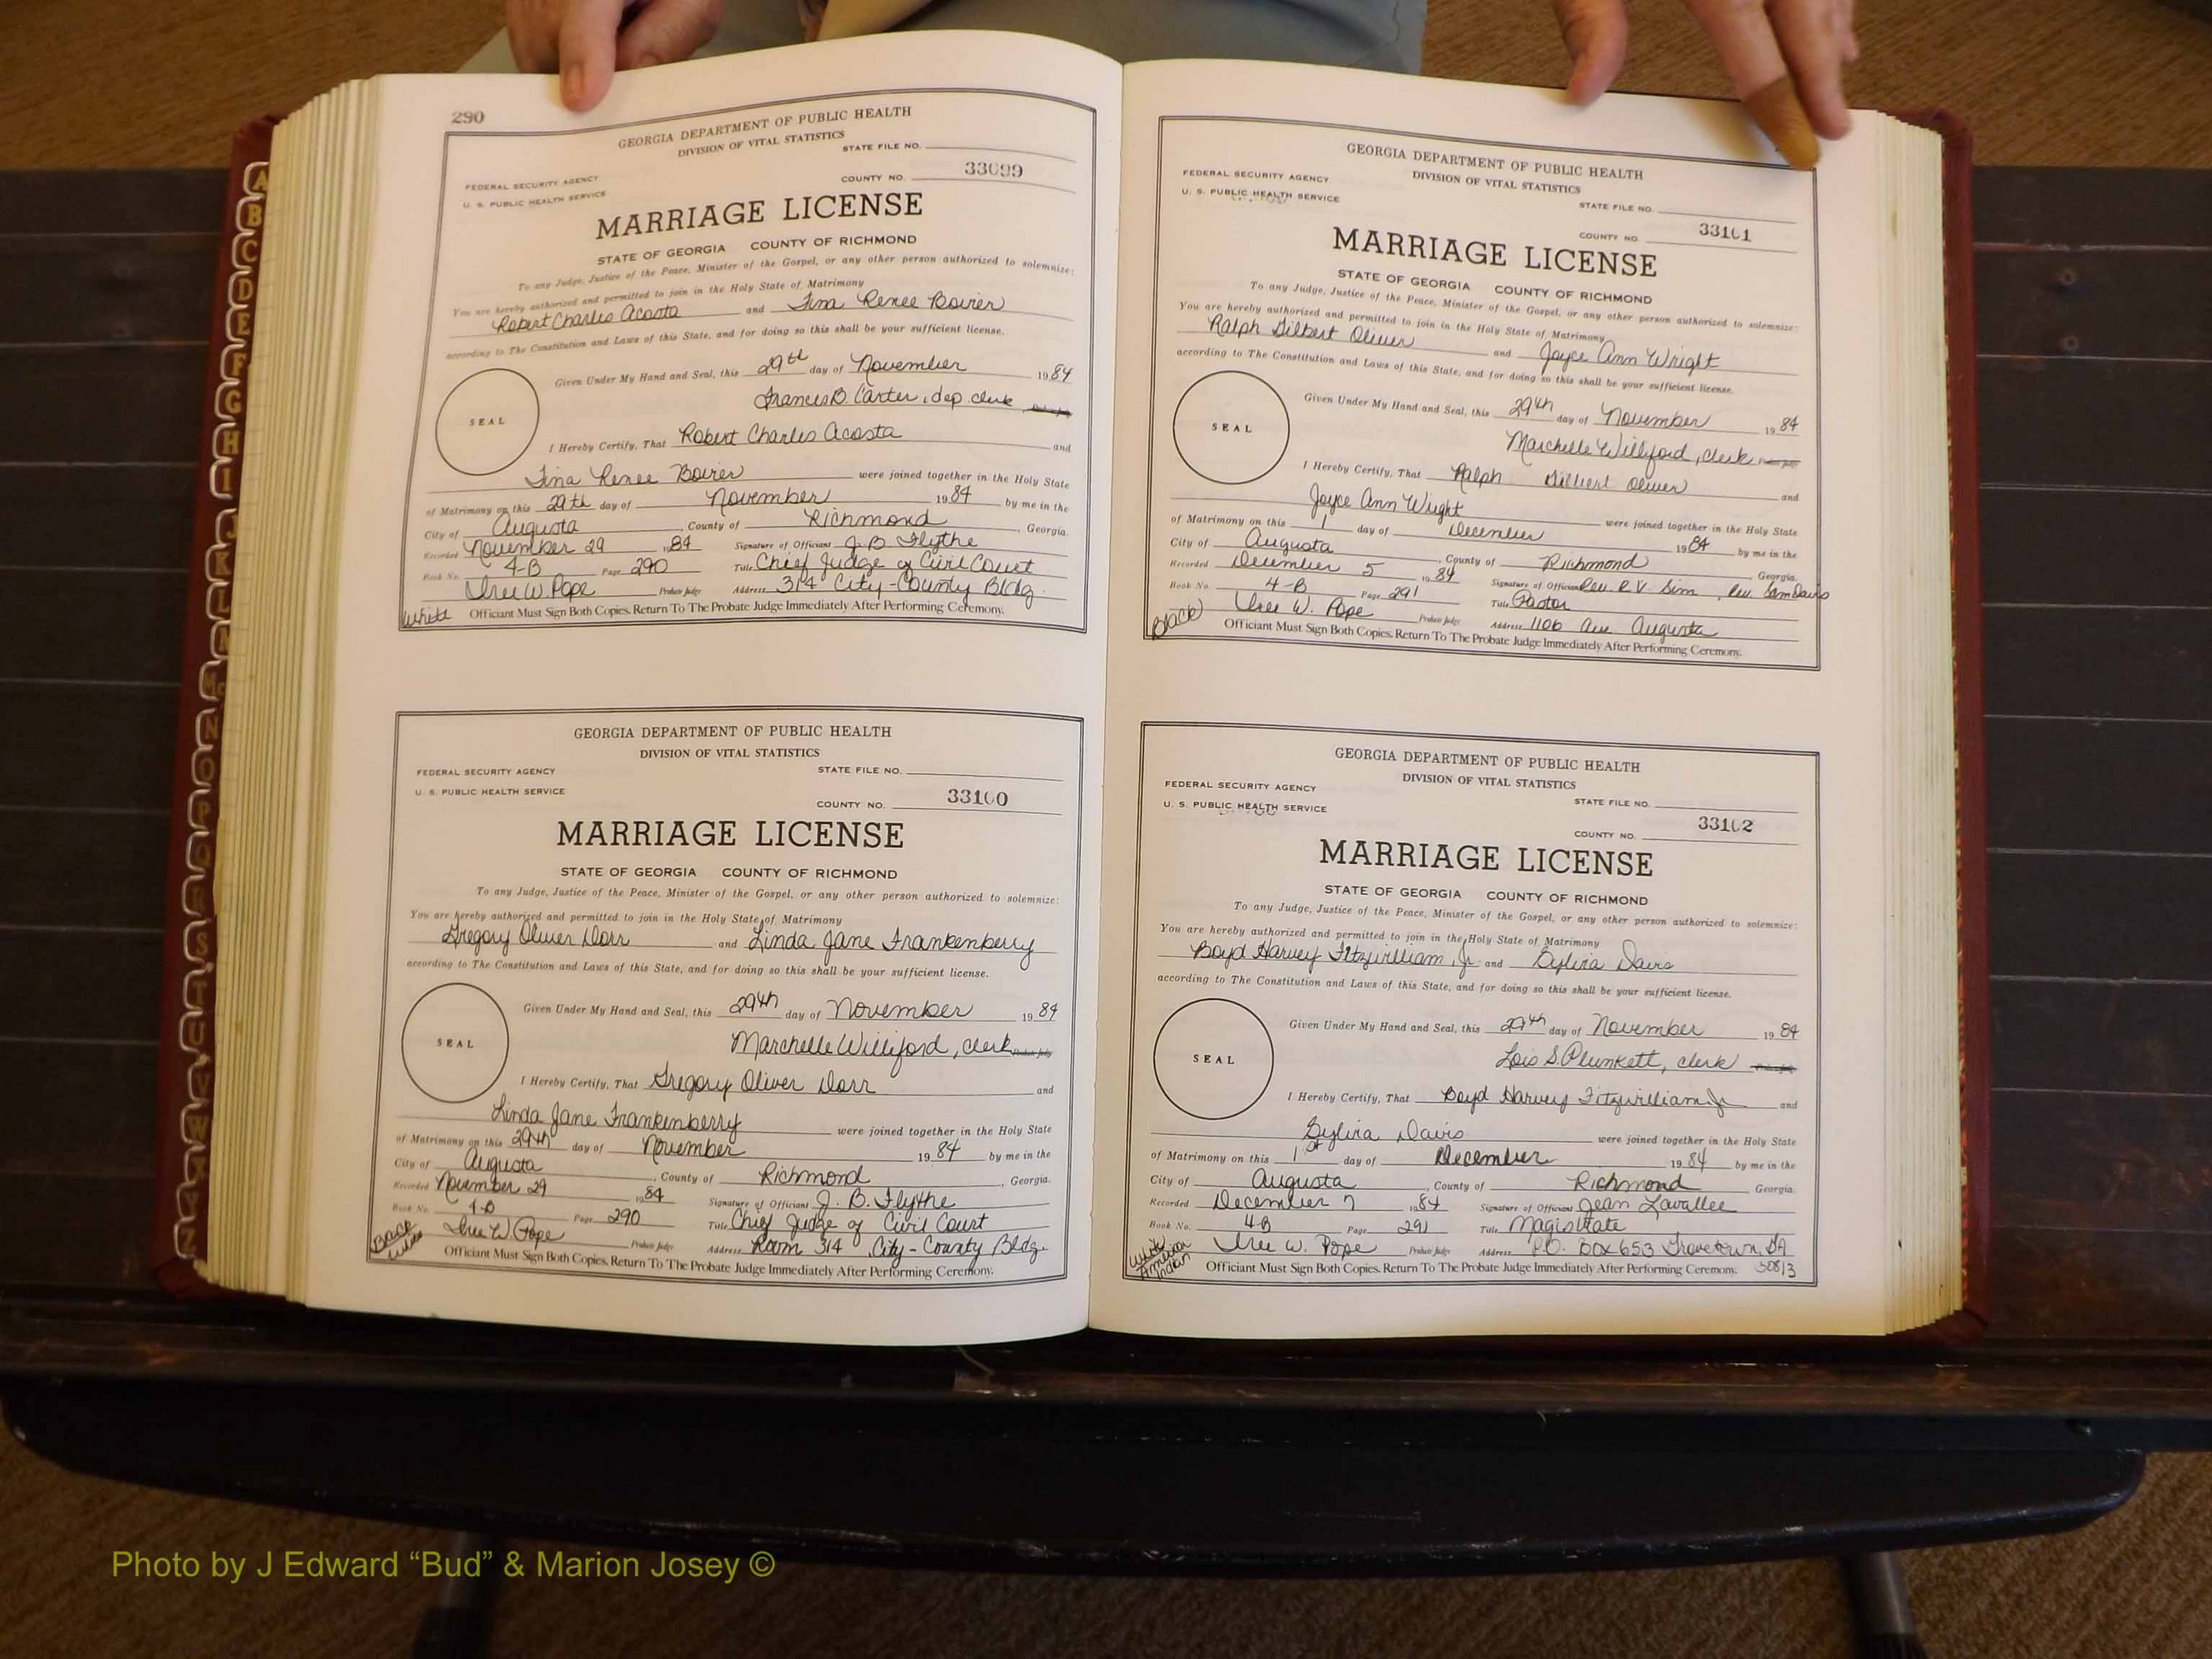 290
GEORGIA DEPARTMENT OF PUBLIC HEALTH
DIVISION OF VITAL STATISTICS
STATE FILE NO.
FEDERAL SECURITY AGENCY
COUNTY NO. 33099
U. S. PUBLIC HEALTH SERVICE
MARRIAGE LICENSE
STATE OF GEORGIA COUNTY OF RICHMOND
To any Judge, Justice of the Peace, Minister of the Gospel, or any other person authorized to solemnize:
You are hereby authorized and permitted to join in the Holy State of Matrimony
Robert Charles Acosta and Tina Renee Boirer
according to The Constitution and Laws of this State, and for doing so this shall be your sufficient license.
Given Under My Hand and Seal, this 29th day of November 1984
Frances B. Carter, dep. clerk
SEAL
I Hereby Certify, That Robert Charles Acosta and
Tina Renee Boirer were joined together in the Holy State
of Matrimony on this 29th day of November 1984 by me in the
City of Augusta, County of Richmond, Georgia.
Recorded November 29 1984 Signature of Officiant J. B. Flythe
Book No. 4-B Page 290 Title Chief Judge of Civil Court
W. Pope Probate Judge Address 314 City-County Bldg.
White Officiant Must Sign Both Copies. Return To The Probate Judge Immediately After Performing Ceremony.
GEORGIA DEPARTMENT OF PUBLIC HEALTH
DIVISION OF VITAL STATISTICS
FEDERAL SECURITY AGENCY STATE FILE NO.
U. S. PUBLIC HEALTH SERVICE
COUNTY NO. 33100
MARRIAGE LICENSE
STATE OF GEORGIA COUNTY OF RICHMOND
To any Judge, Justice of the Peace, Minister of the Gospel, or any other person authorized to solemnize:
You are hereby authorized and permitted to join in the Holy State of Matrimony
Gregory Oliver Dorr and Linda Jane Frankenberry
according to The Constitution and Laws of this State, and for doing so this shall be your sufficient license.
Given Under My Hand and Seal, this 29th day of November 1984
Marchelle Williford, clerk
SEAL
I Hereby Certify, That Gregory Oliver Dorr and
Linda Jane Frankenberry were joined together in the Holy State
of Matrimony on this 29th day of November 1984 by me in the
City of Augusta, County of Richmond, Georgia.
Recorded November 29 1984 Signature of Officiant J. B. Flythe
Book No. 4-B Page 290 Title Chief Judge of Civil Court
W. Pope Probate Judge Address Room 314 City-County Bldg.
Black White Officiant Must Sign Both Copies. Return To The Probate Judge Immediately After Performing Ceremony.
GEORGIA DEPARTMENT OF PUBLIC HEALTH
DIVISION OF VITAL STATISTICS
FEDERAL SECURITY AGENCY
U. S. PUBLIC HEALTH SERVICE
STATE FILE NO.
COUNTY NO. 33101
MARRIAGE LICENSE
STATE OF GEORGIA COUNTY OF RICHMOND
To any Judge, Justice of the Peace, Minister of the Gospel, or any other person authorized to solemnize:
You are hereby authorized and permitted to join in the Holy State of Matrimony
Ralph Gilbert Oliver and Joyce Ann Wright
according to The Constitution and Laws of this State, and for doing so this shall be your sufficient license.
Given Under My Hand and Seal, this 29th day of November 1984
Marchelle Williford, clerk
SEAL
I Hereby Certify, That Ralph Gilbert Oliver and
Joyce Ann Wright were joined together in the Holy State
of Matrimony on this 1 day of December 1984 by me in the
City of Augusta, County of Richmond, Georgia.
Recorded December 5 1984 Signature of Officiant Rev. R V Sim, Rev. Sam Davis
Book No. 4-B Page 291 Title Pastor
W. Pope Probate Judge Address 1106 Ave Augusta
Black Officiant Must Sign Both Copies. Return To The Probate Judge Immediately After Performing Ceremony.
GEORGIA DEPARTMENT OF PUBLIC HEALTH
DIVISION OF VITAL STATISTICS
FEDERAL SECURITY AGENCY
U. S. PUBLIC HEALTH SERVICE
STATE FILE NO.
COUNTY NO. 33102
MARRIAGE LICENSE
STATE OF GEORGIA COUNTY OF RICHMOND
To any Judge, Justice of the Peace, Minister of the Gospel, or any other person authorized to solemnize:
You are hereby authorized and permitted to join in the Holy State of Matrimony
Boyd Harvey Fitzwilliam, Jr. and Sylvia Davis
according to The Constitution and Laws of this State, and for doing so this shall be your sufficient license.
Given Under My Hand and Seal, this 29th day of November 1984
Lois S. Plunkett, clerk
SEAL
I Hereby Certify, That Boyd Harvey Fitzwilliam Jr and
Sylvia Davis were joined together in the Holy State
of Matrimony on this 1st day of December 1984 by me in the
City of Augusta, County of Richmond Georgia.
Recorded December 7 1984 Signature of Officiant Jean Lavallee
Book No. 4-B Page 291 Title Magistrate
W. Pope Probate Judge Address P.O. Box 653 Grovetown, GA
White American Indian Officiant Must Sign Both Copies. Return To The Probate Judge Immediately After Performing Ceremony. 30813
A
B
C
D
E
F
G
H
I
J
K
L
M
N
O
P
Q
R
S
T
U
V
W
Z
Photo by J Edward “Bud” & Marion Josey ©